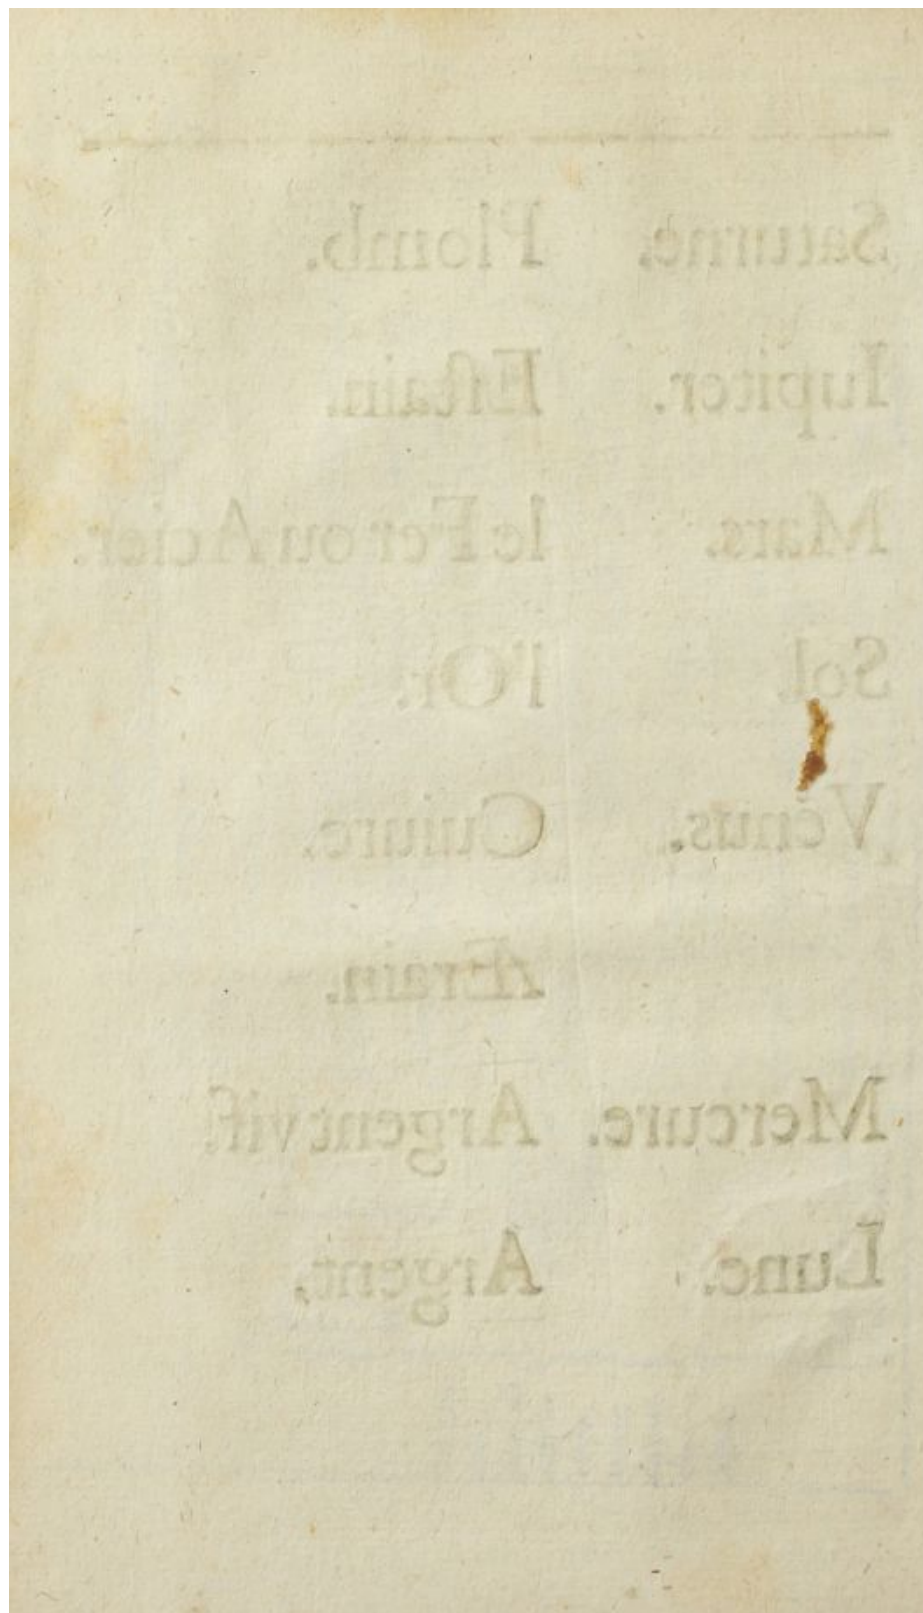 Saturne. Plomb.
Iupiter. Eſtain.
Mars. le Fer ou Acier.
Sol. l'Or.
Venus. Cuiure.
Ærain.
Mercure. Argent vif.
Lune. Argent.